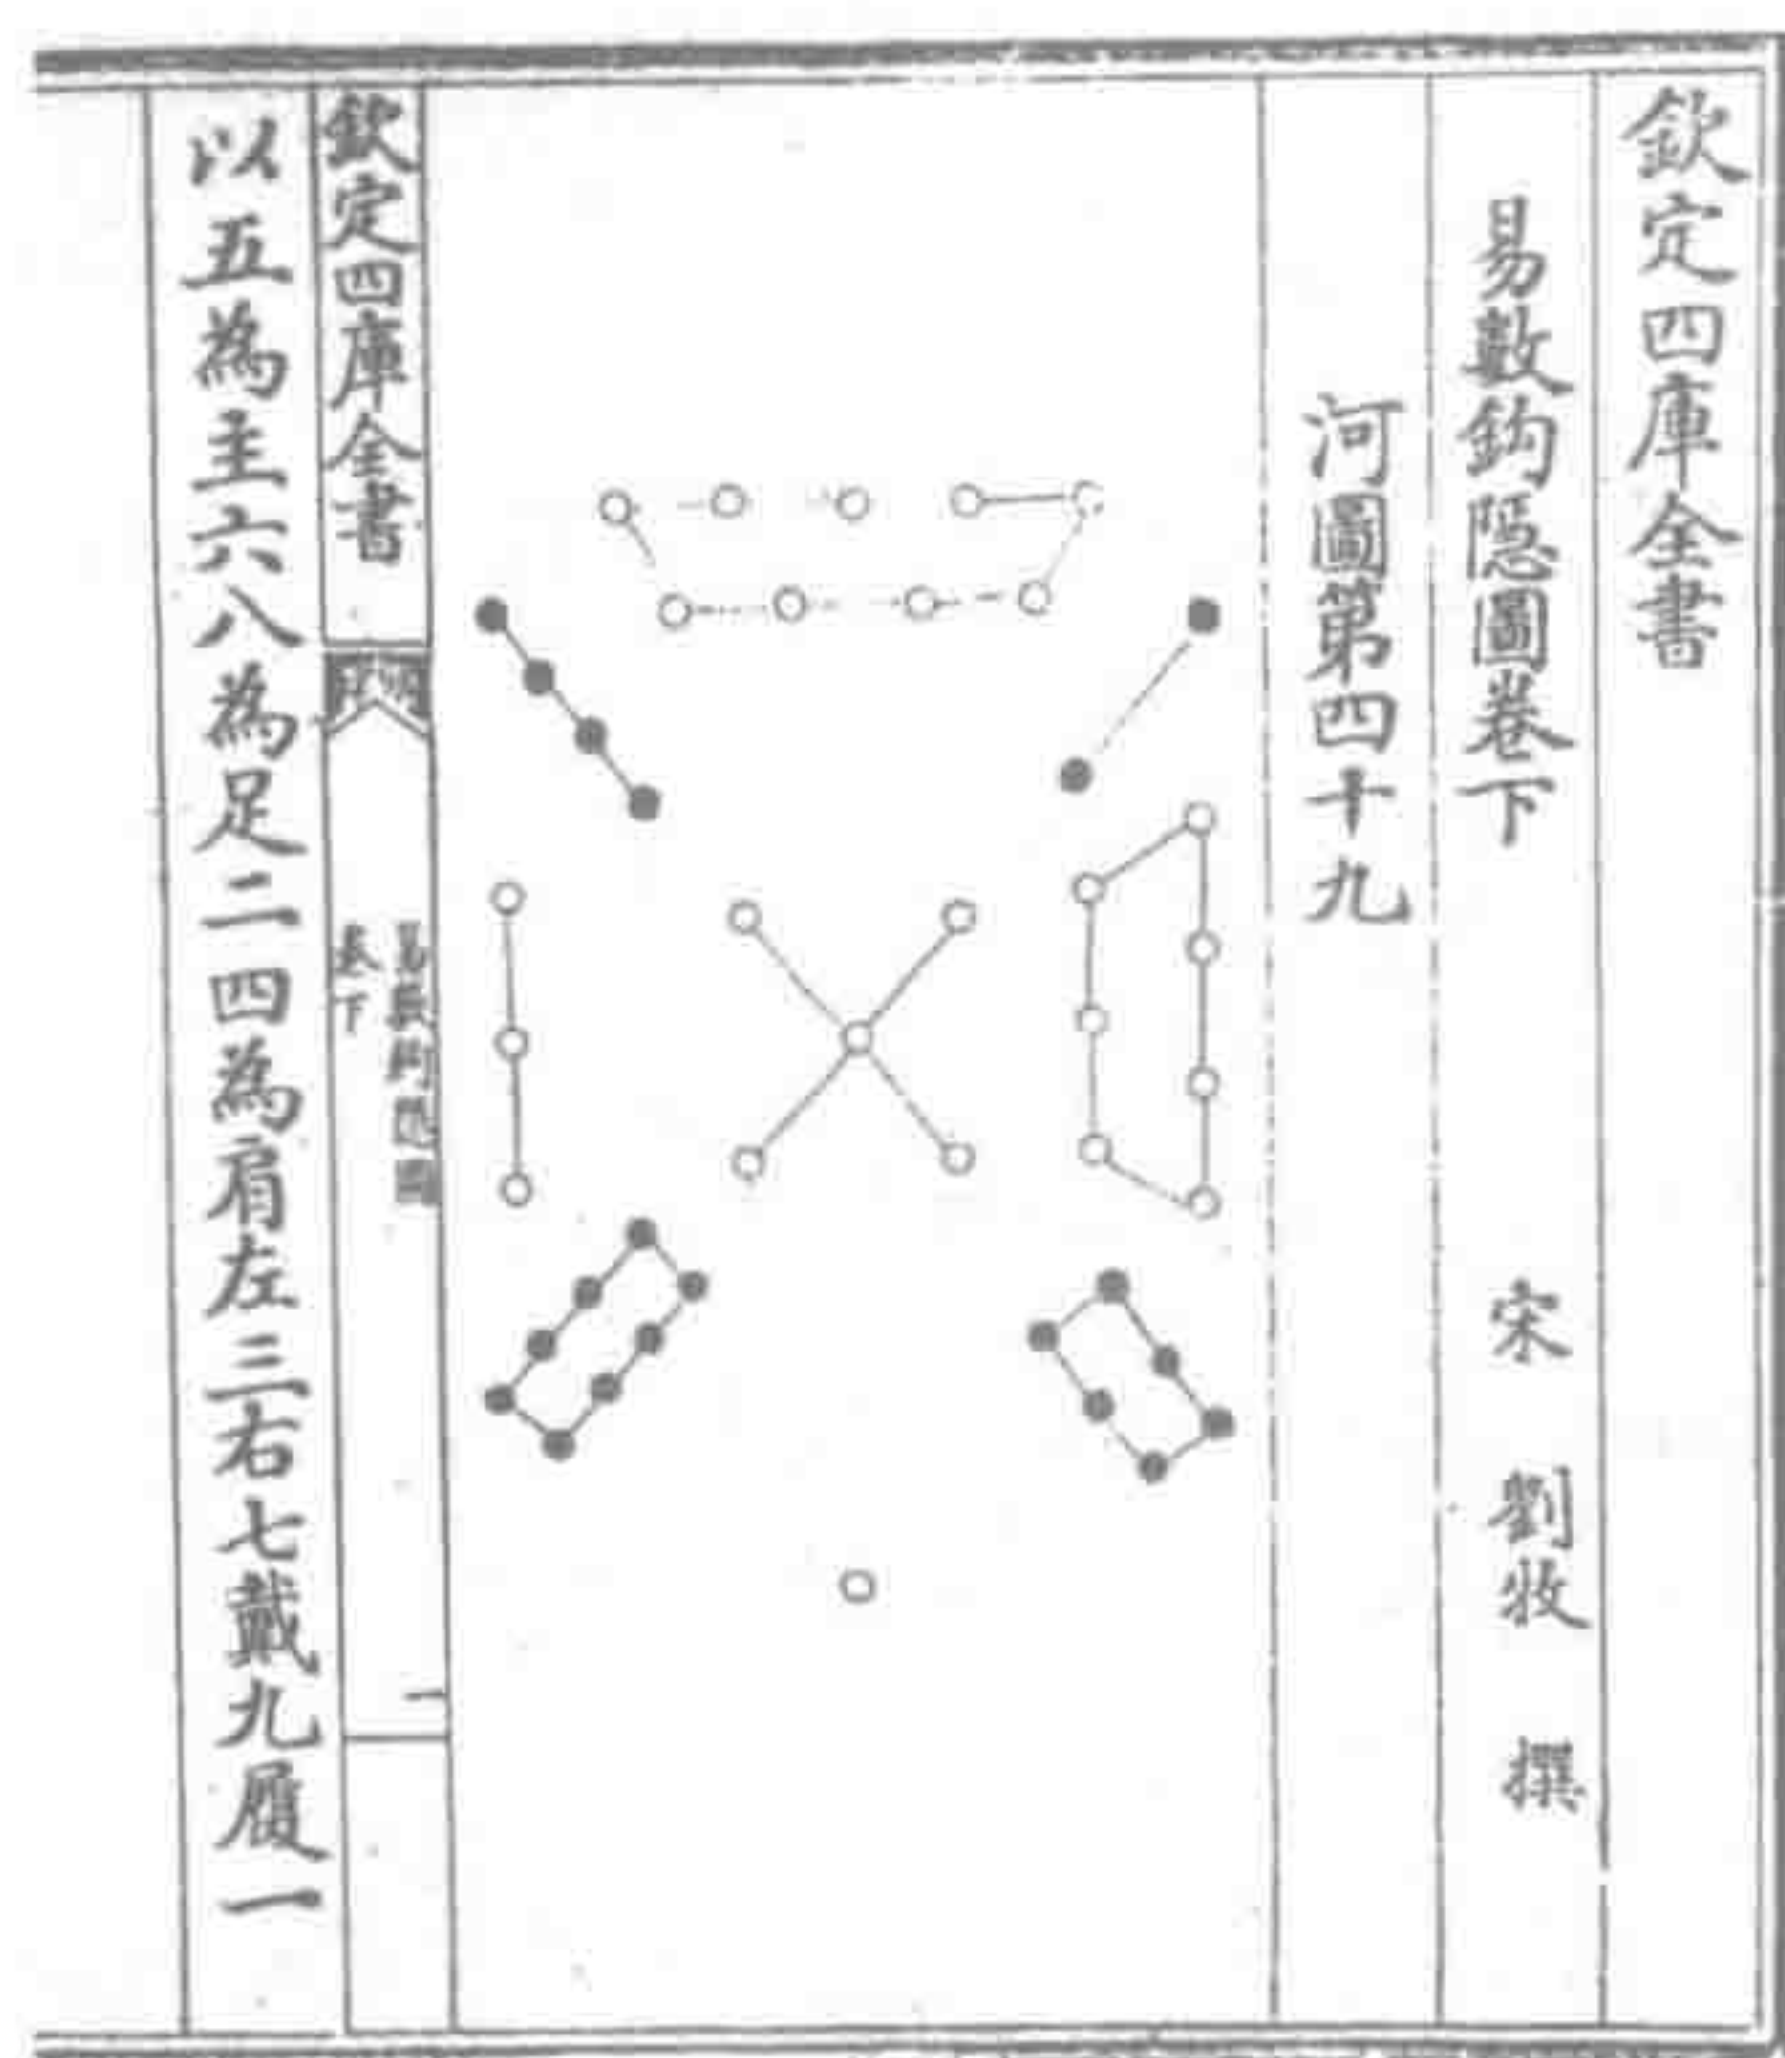 欽定四庫全書
易數鈎隠圖卷下
宋 劉牧 撰
河圖第四十九
欽定四庫全書
易數鈎隠圖
卷下
一
以五為主六八為足二四為肩左三右七戴九履一